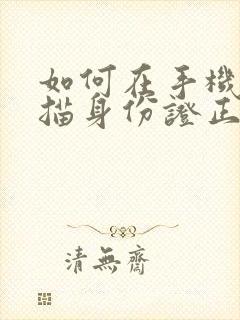 如何在手機
描身份證正
清無齋